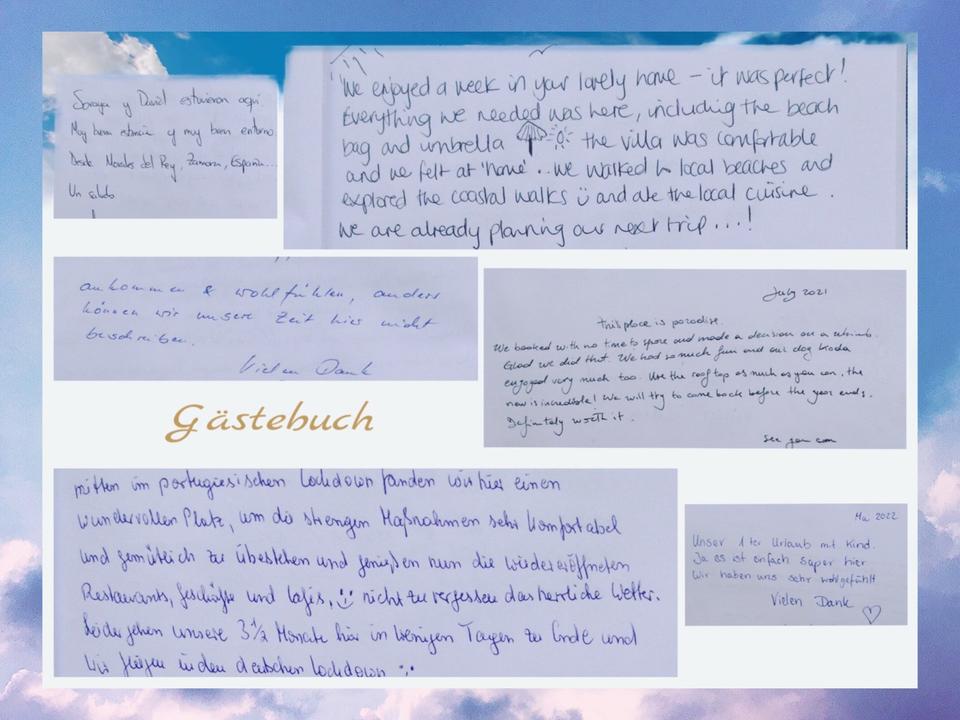 Soraya y David estuvieron aquí
Muy buena estancia y muy buen entorno
Desde Morales del Rey, Zamora, España...
Un saludo
We enjoyed a week in your lovely home – it was perfect!
Everything we needed was here, including the beach
bag and umbrella the villa was comfortable
and we felt at 'home'... we walked to local beaches and
explored the coastal walks and ate the local cuisine.
We are already planning our next trip...!
ankommen & wohlfühlen, anders
können wir unsere Zeit hier nicht
beschreiben.
Vielen Dank
July 2021
This place is paradise.
We booked with no time to spare and made a decision on a whimb.
Glad we did that. We had so much fun and our dog
enjoyed very much too. Use the rooftop as much as you can, the
view is incredible! We will try to come back before the year ends.
Definitely worth it.
See you
Gästebuch
mitten im portugiesischen Lockdown fanden wir hier einen
wundervollen Platz, um die strengen Maßnahmen sehr komfortabel
und gemütlich zu überstehen und genießen nun die wiedereröffneten
Restaurants, Geschäfte und Cafés, nicht zu vergessen das herrliche Wetter.
Leider gehen unsere 3 1/2 Monate hier in wenigen Tagen zu Ende und
wir fliegen in den deutschen Lockdown
Mai 2022
Unser 1ter Urlaub mit Kind.
Ja es ist einfach super hier
Wir haben uns sehr wohlgefühlt
Vielen Dank